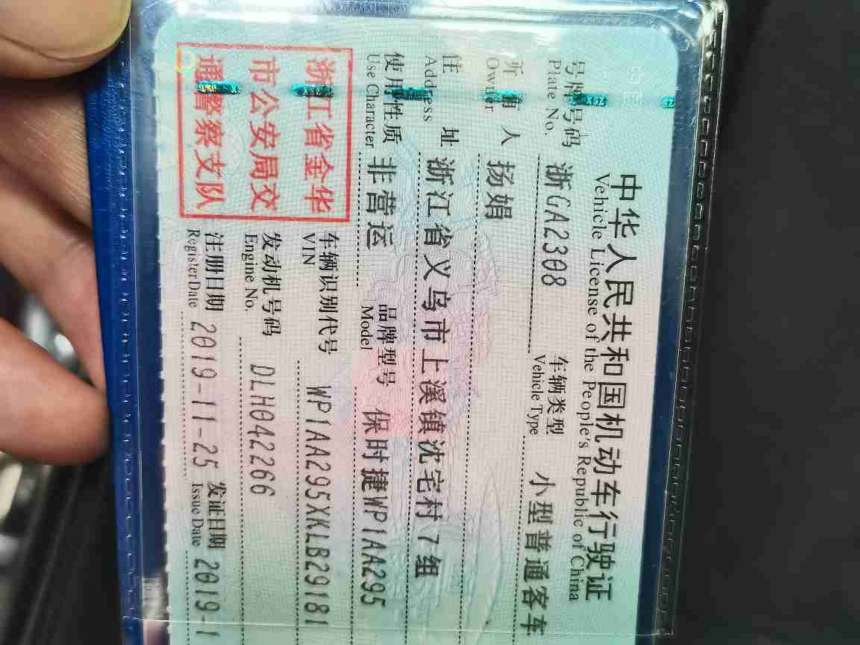 中华人民共和国机动车行驶证
Vehicle License of the People's Republic of China
号牌号码 浙GA2308 车辆类型 小型普通客车
Plate No. Vehicle Type
所有人 扬娟
Owner
住址 浙江省义乌市上溪镇沈宅村7组
Address
使用性质 非营运 品牌型号 保时捷WP1AA295
Use Character Model
浙江省金华
市公安局交
通警察支队
车辆识别代号 WP1AA295XKLB29181
VIN
发动机号码 DLH042266
Engine No.
注册日期 2019-11-25 发证日期 2019-1
Register Date Issue Date